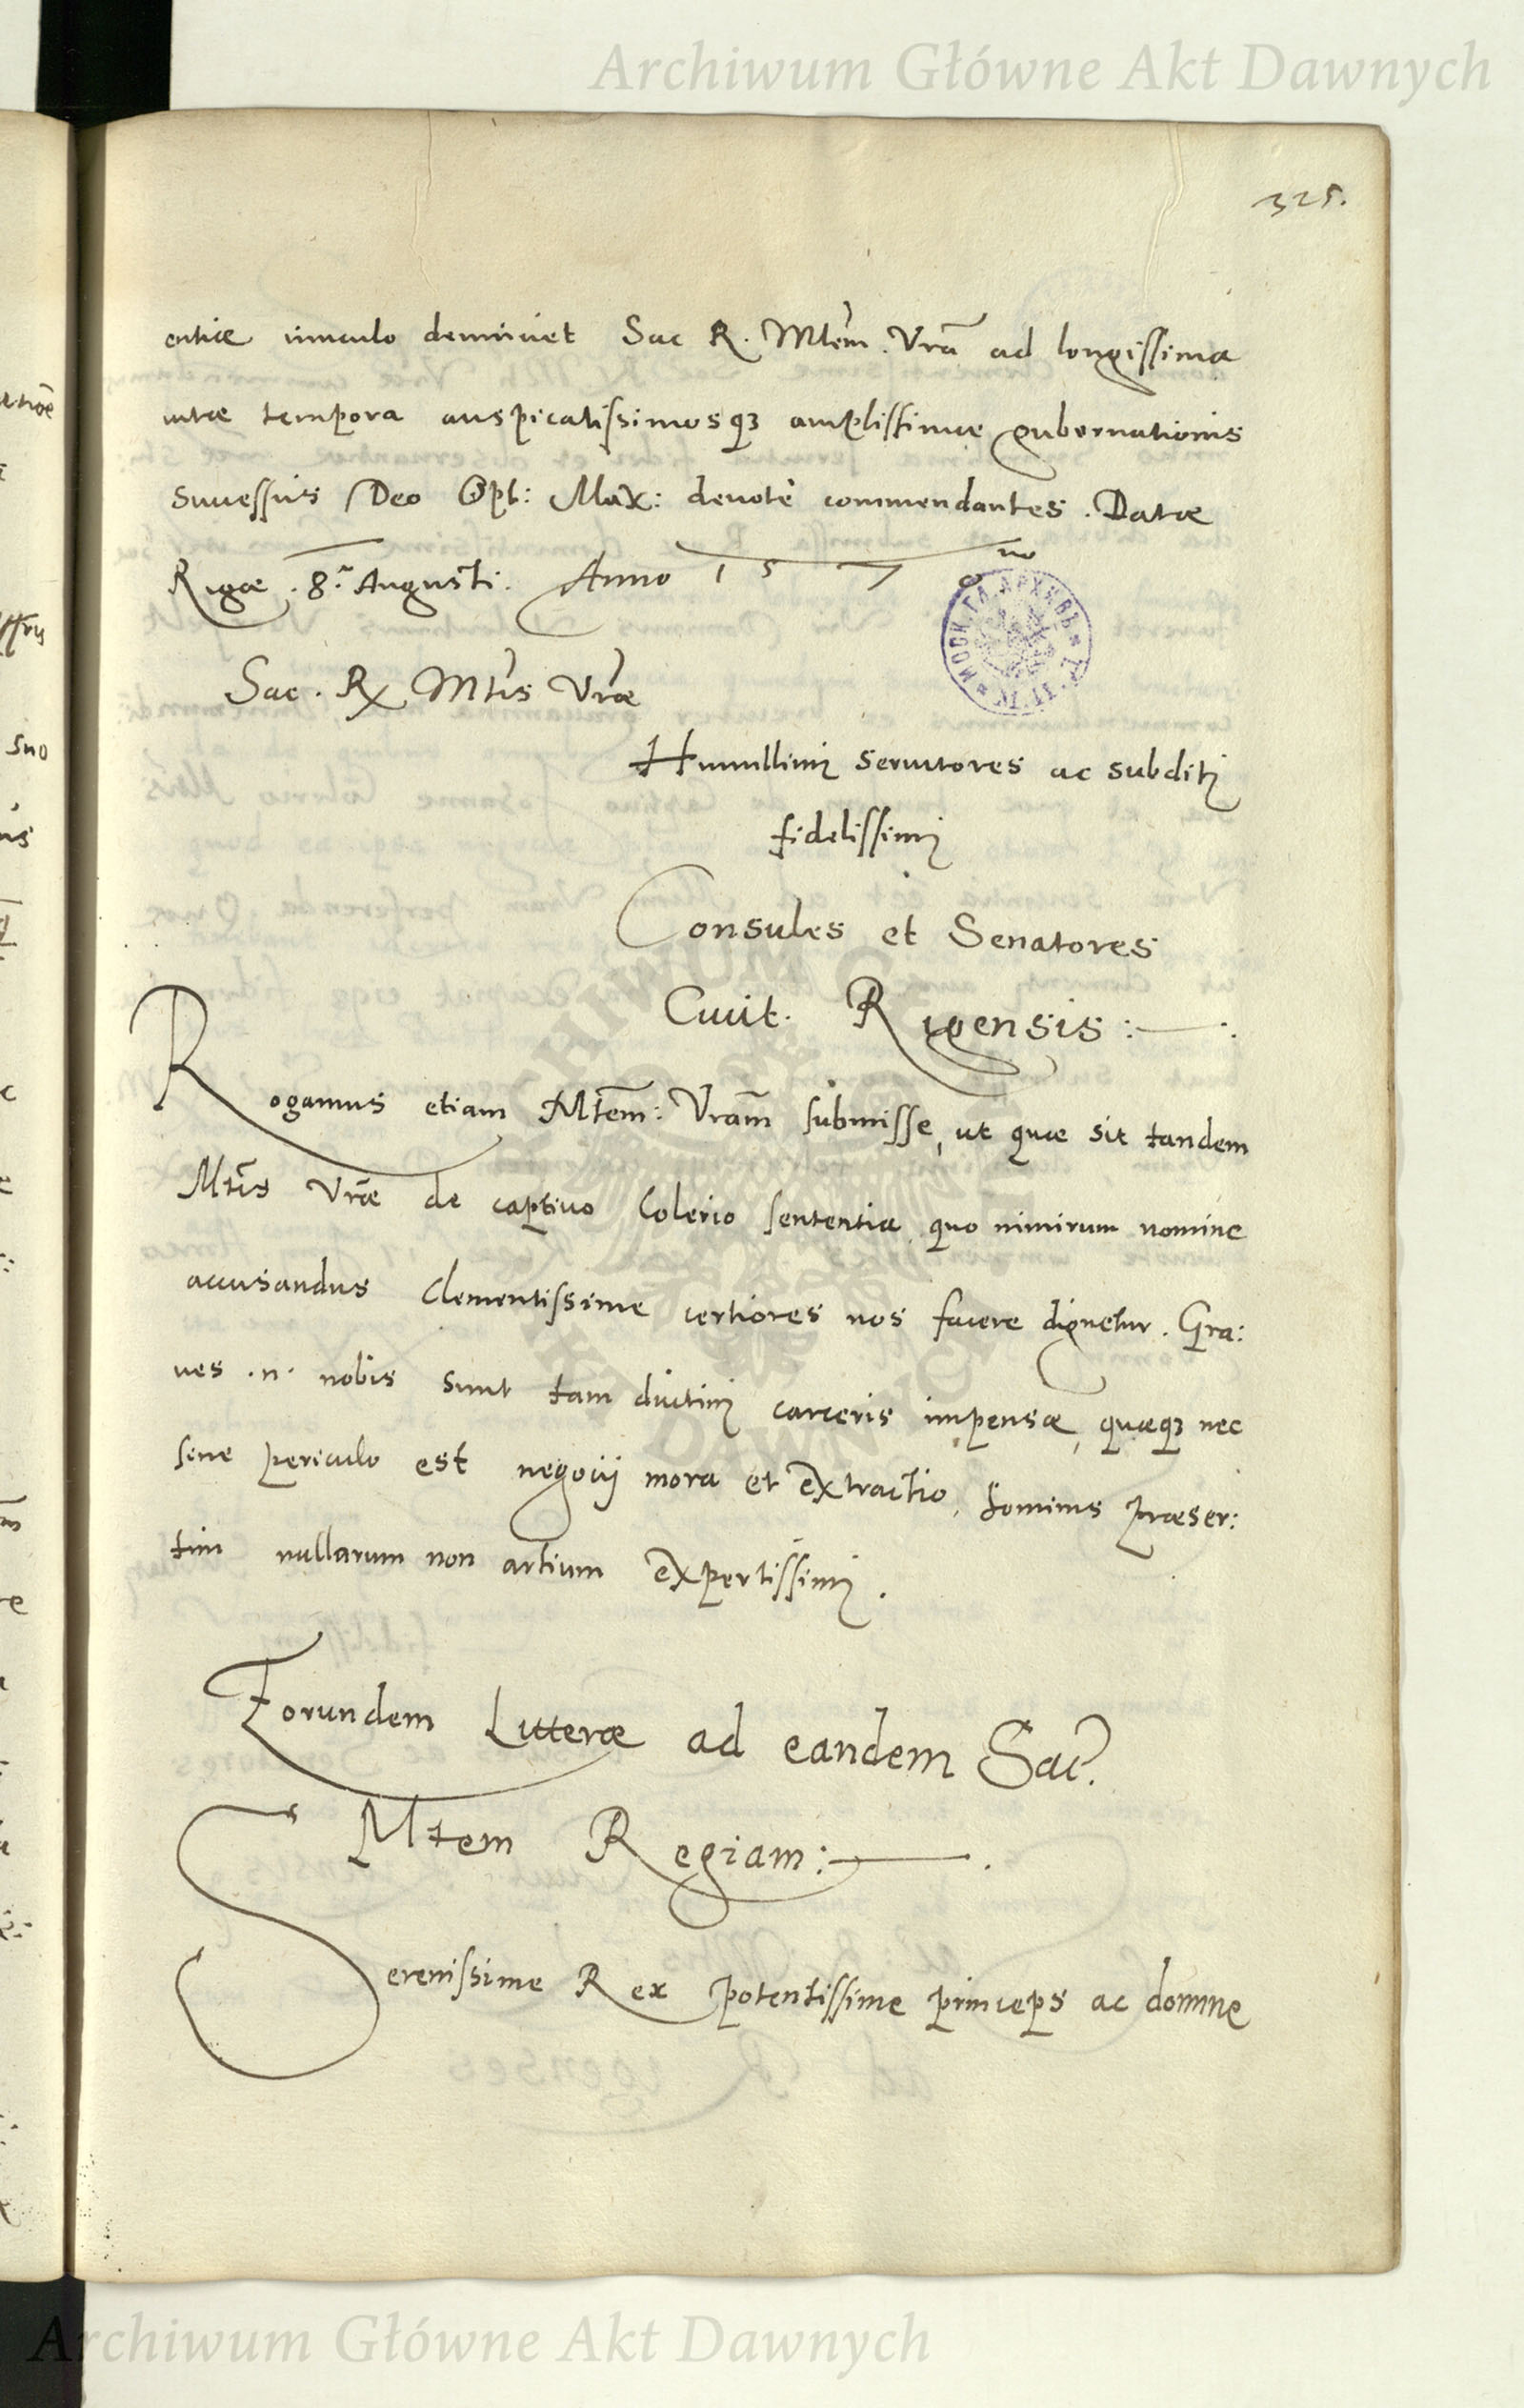 Archiwum Główne Akt Dawnych
325.
entiæ vinculo deuinciet Sac R. Mtem. Vrã ad longissima
uitæ tempora auspicatissimosq3 amplissimæ gubernationis
Successus Deo Opt: Max: deuotè commendantes. Datæ
Rigæ. 8.ª Augusti. Anno 1570 no
Sac. Rx Mtis Vræ
Humillimi seruitores ac subditi
fidelissimi
Consules et Senatores
Ciuit. Rigensis:—.
Rogamus etiam Mtem: Vram submisse, ut quæ sit tandem
Mtis Vræ de captiuo Colerio sententia, quo nimirum nomine
accusandus Clementissime certiores nos facere dignetur. Gra:
ues .n. nobis sunt tam diutini carceris impensæ, quæq3 nec
sine periculo est negocij mora et extractio, hominis præser:
tim nullarum non artium expertissimi.
Eorundem Litteræ ad eandem Sac.
Mtem Regiam:—.
Serenissime Rex potentissime princeps ac domine
Archiwum Główne Akt Dawnych